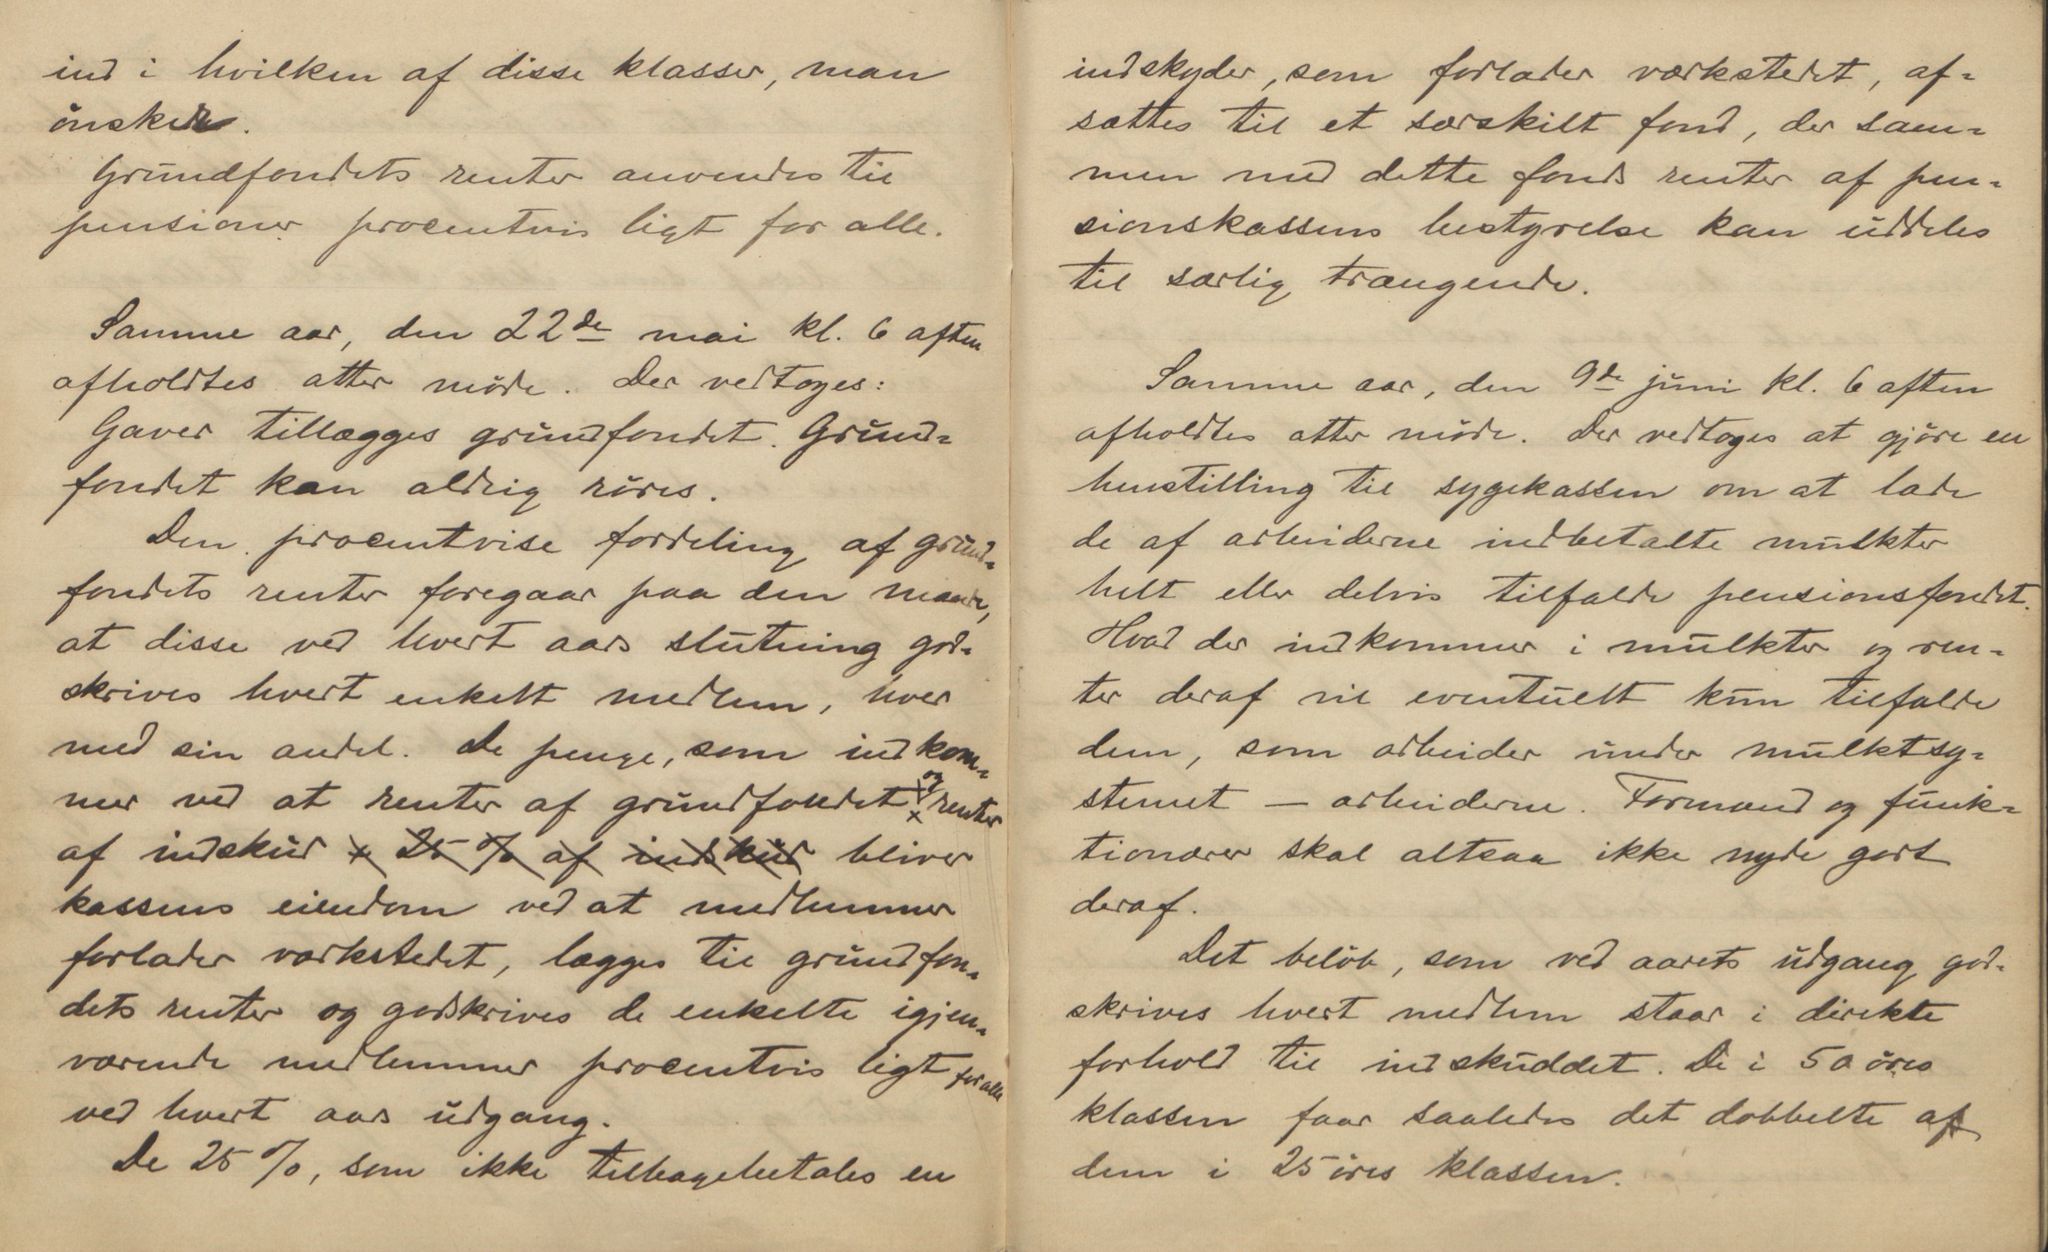 ind i hvilken af disse klasser, man
ønsker.
Grundfondets renter anvendes til
pensioner procentvis ligt for alle.
Samme aar, den 22de mai kl. 6 aften
afholdtes atter møde. Der vedtoges:
Gaver tillægges grundfondet. Grund-
fondet kan aldrig røres.
Den procentvise fordeling af grund-
fondets renter foregaar paa den maade,
at disse ved hvert aars slutning god-
skrives hvert enkelt medlem, hver
med sin andel. De penge, som indkom-
mer ved at renter af grundfondet og renter
af indskud + 25 % af indskud bliver
kassens eiendom ved at medlemmer
forlader værkstedet, lægges til grundfon-
dets renter og godskrives de enkelte igjen-
værende medlemmer procentvis ligt for alle
ved hvert aars udgang.
De 25 %, som ikke tilbagebetales en
indskyder, som forlader værkstedet, af-
sættes til et særskilt fond, der sam-
men med dette fonds renter af pen-
sionskassens bestyrelse kan uddeles
til særlig trængende.
Samme aar, den 9de juni kl. 6 aften
afholdtes atter møde. Der vedtoges at gjøre en
henstilling til sygekassen om at lade
de af arbeiderne indbetalte mulkter
helt eller delvis tilfalde pensionsfondet.
Hvad der indkommer i mulkter og ren-
ter deraf vil eventuelt kun tilfalde
dem, som arbeider under mulktsy-
stemet — arbeiderne. Formænd og funk-
tionærer skal altsaa ikke nyde godt
deraf.
Det beløb, som ved aarets udgang god-
skrives hvert medlem staar i direkte
forhold til indskuddet. De i 50 øres
klassen faar saaledes det dobbelte af
dem i 25 øres klassen.